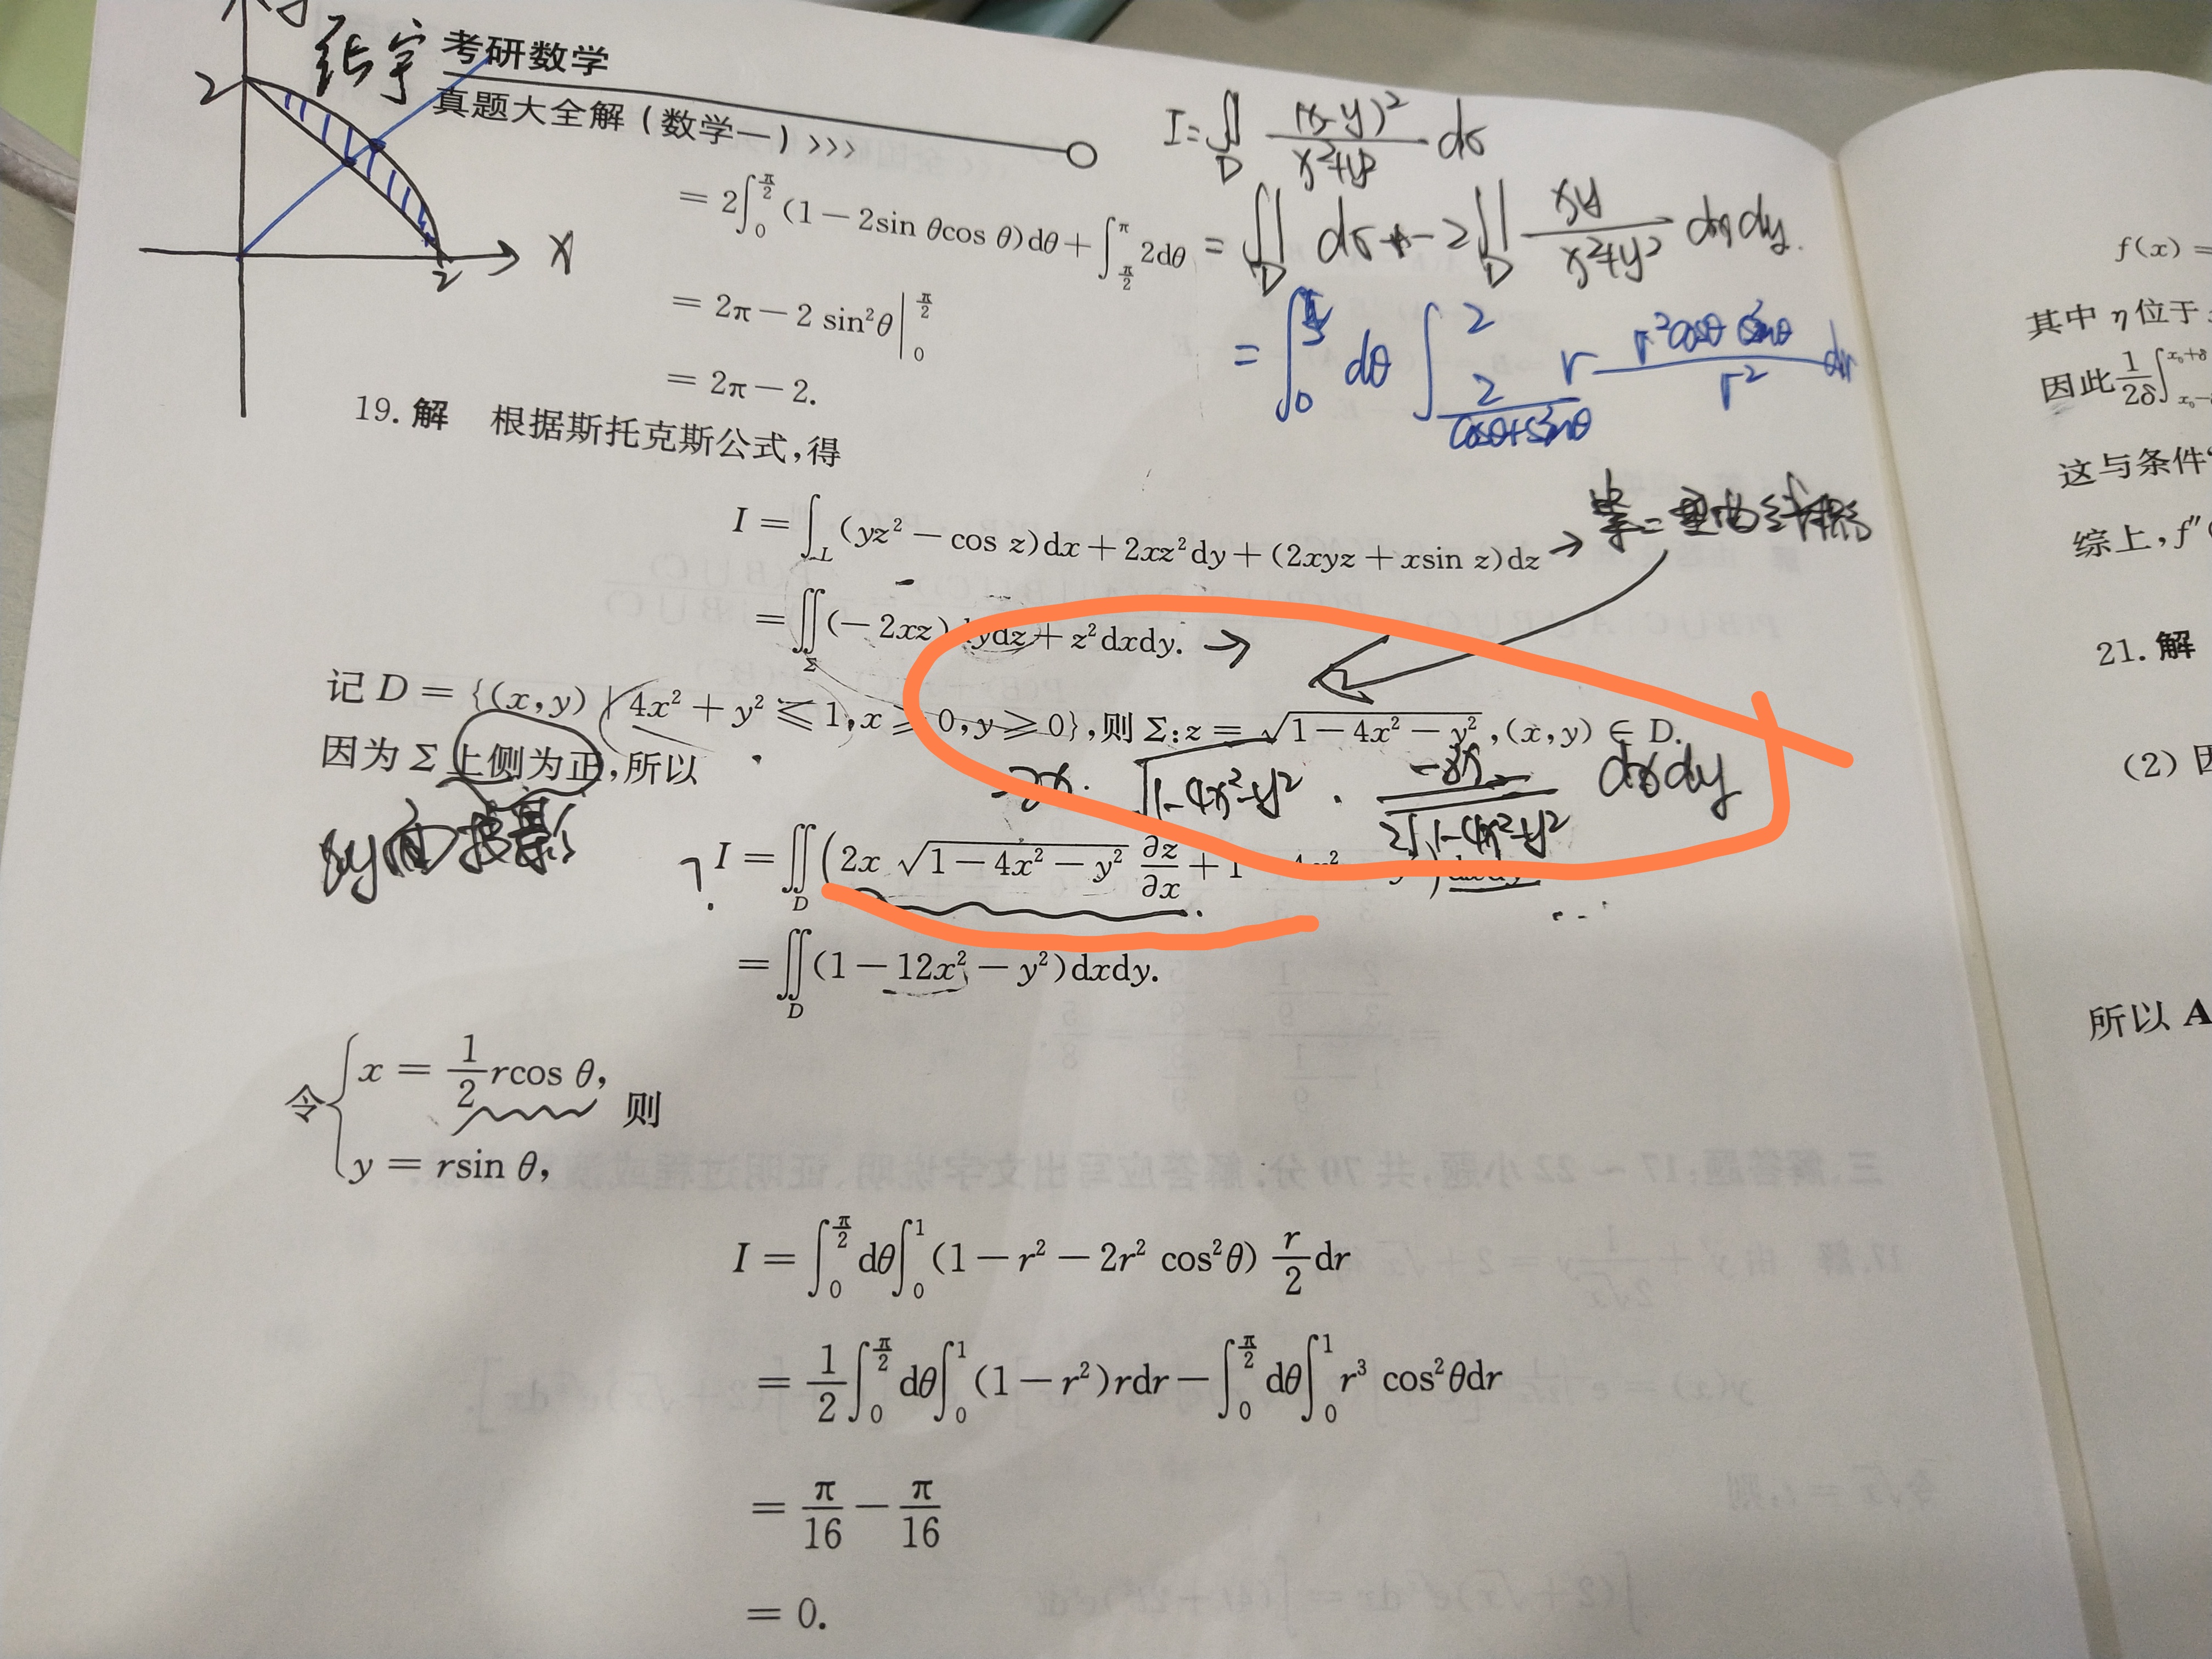 张宇 考研数学
真题大全解(数学一)>>>
2
x
2
I=∬_D (x-y)²/(x²+y²) dσ
= 2∫_0^{π/2} (1-2sin θcos θ)dθ+∫_{π/2}^{π} 2dθ
= ∬_D dσ -2∬_D xy/(x²+y²) dxdy.
= 2π-2 sin²θ|_0^{π/2}
= ∫_0 dθ ∫_{2/(cosθ+sinθ)}^2 r r²cosθ sinθ/r² dr
= 2π-2.
19. 解 根据斯托克斯公式,得
I = ∫_L (yz²-cos z)dx+2xz²dy+(2xyz+xsin z)dz →
= ∬_Σ (-2xz)dydz+z²dxdy. →
记 D = {(x,y) | 4x²+y² ⩽ 1,x ⩾ 0,y ⩾ 0},则 Σ:z = √(1-4x²-y²),(x,y) ∈ D.
因为 Σ 上侧为正,所以
√(1-4x²-y²) · /(2√(1-4x²-y²)) dxdy
xy面投影
I = ∬_D (2x √(1-4x²-y²) ∂z/∂x+1 4x² y²)dxdy
= ∬_D (1-12x²-y²)dxdy.
令{x = 1/2 rcos θ,
则
y = rsin θ,
I = ∫_0^{π/2} dθ∫_0^1 (1-r²-2r² cos²θ) r/2 dr
= 1/2 ∫_0^{π/2} dθ∫_0^1 (1-r²)rdr-∫_0^{π/2} dθ∫_0^1 r³ cos²θdr
= π/16 - π/16
= 0.
f(x) =
其中 η 位于
因此 1/2δ ∫
这与条件“
综上,f″(
21. 解
(2) 因
所以 A